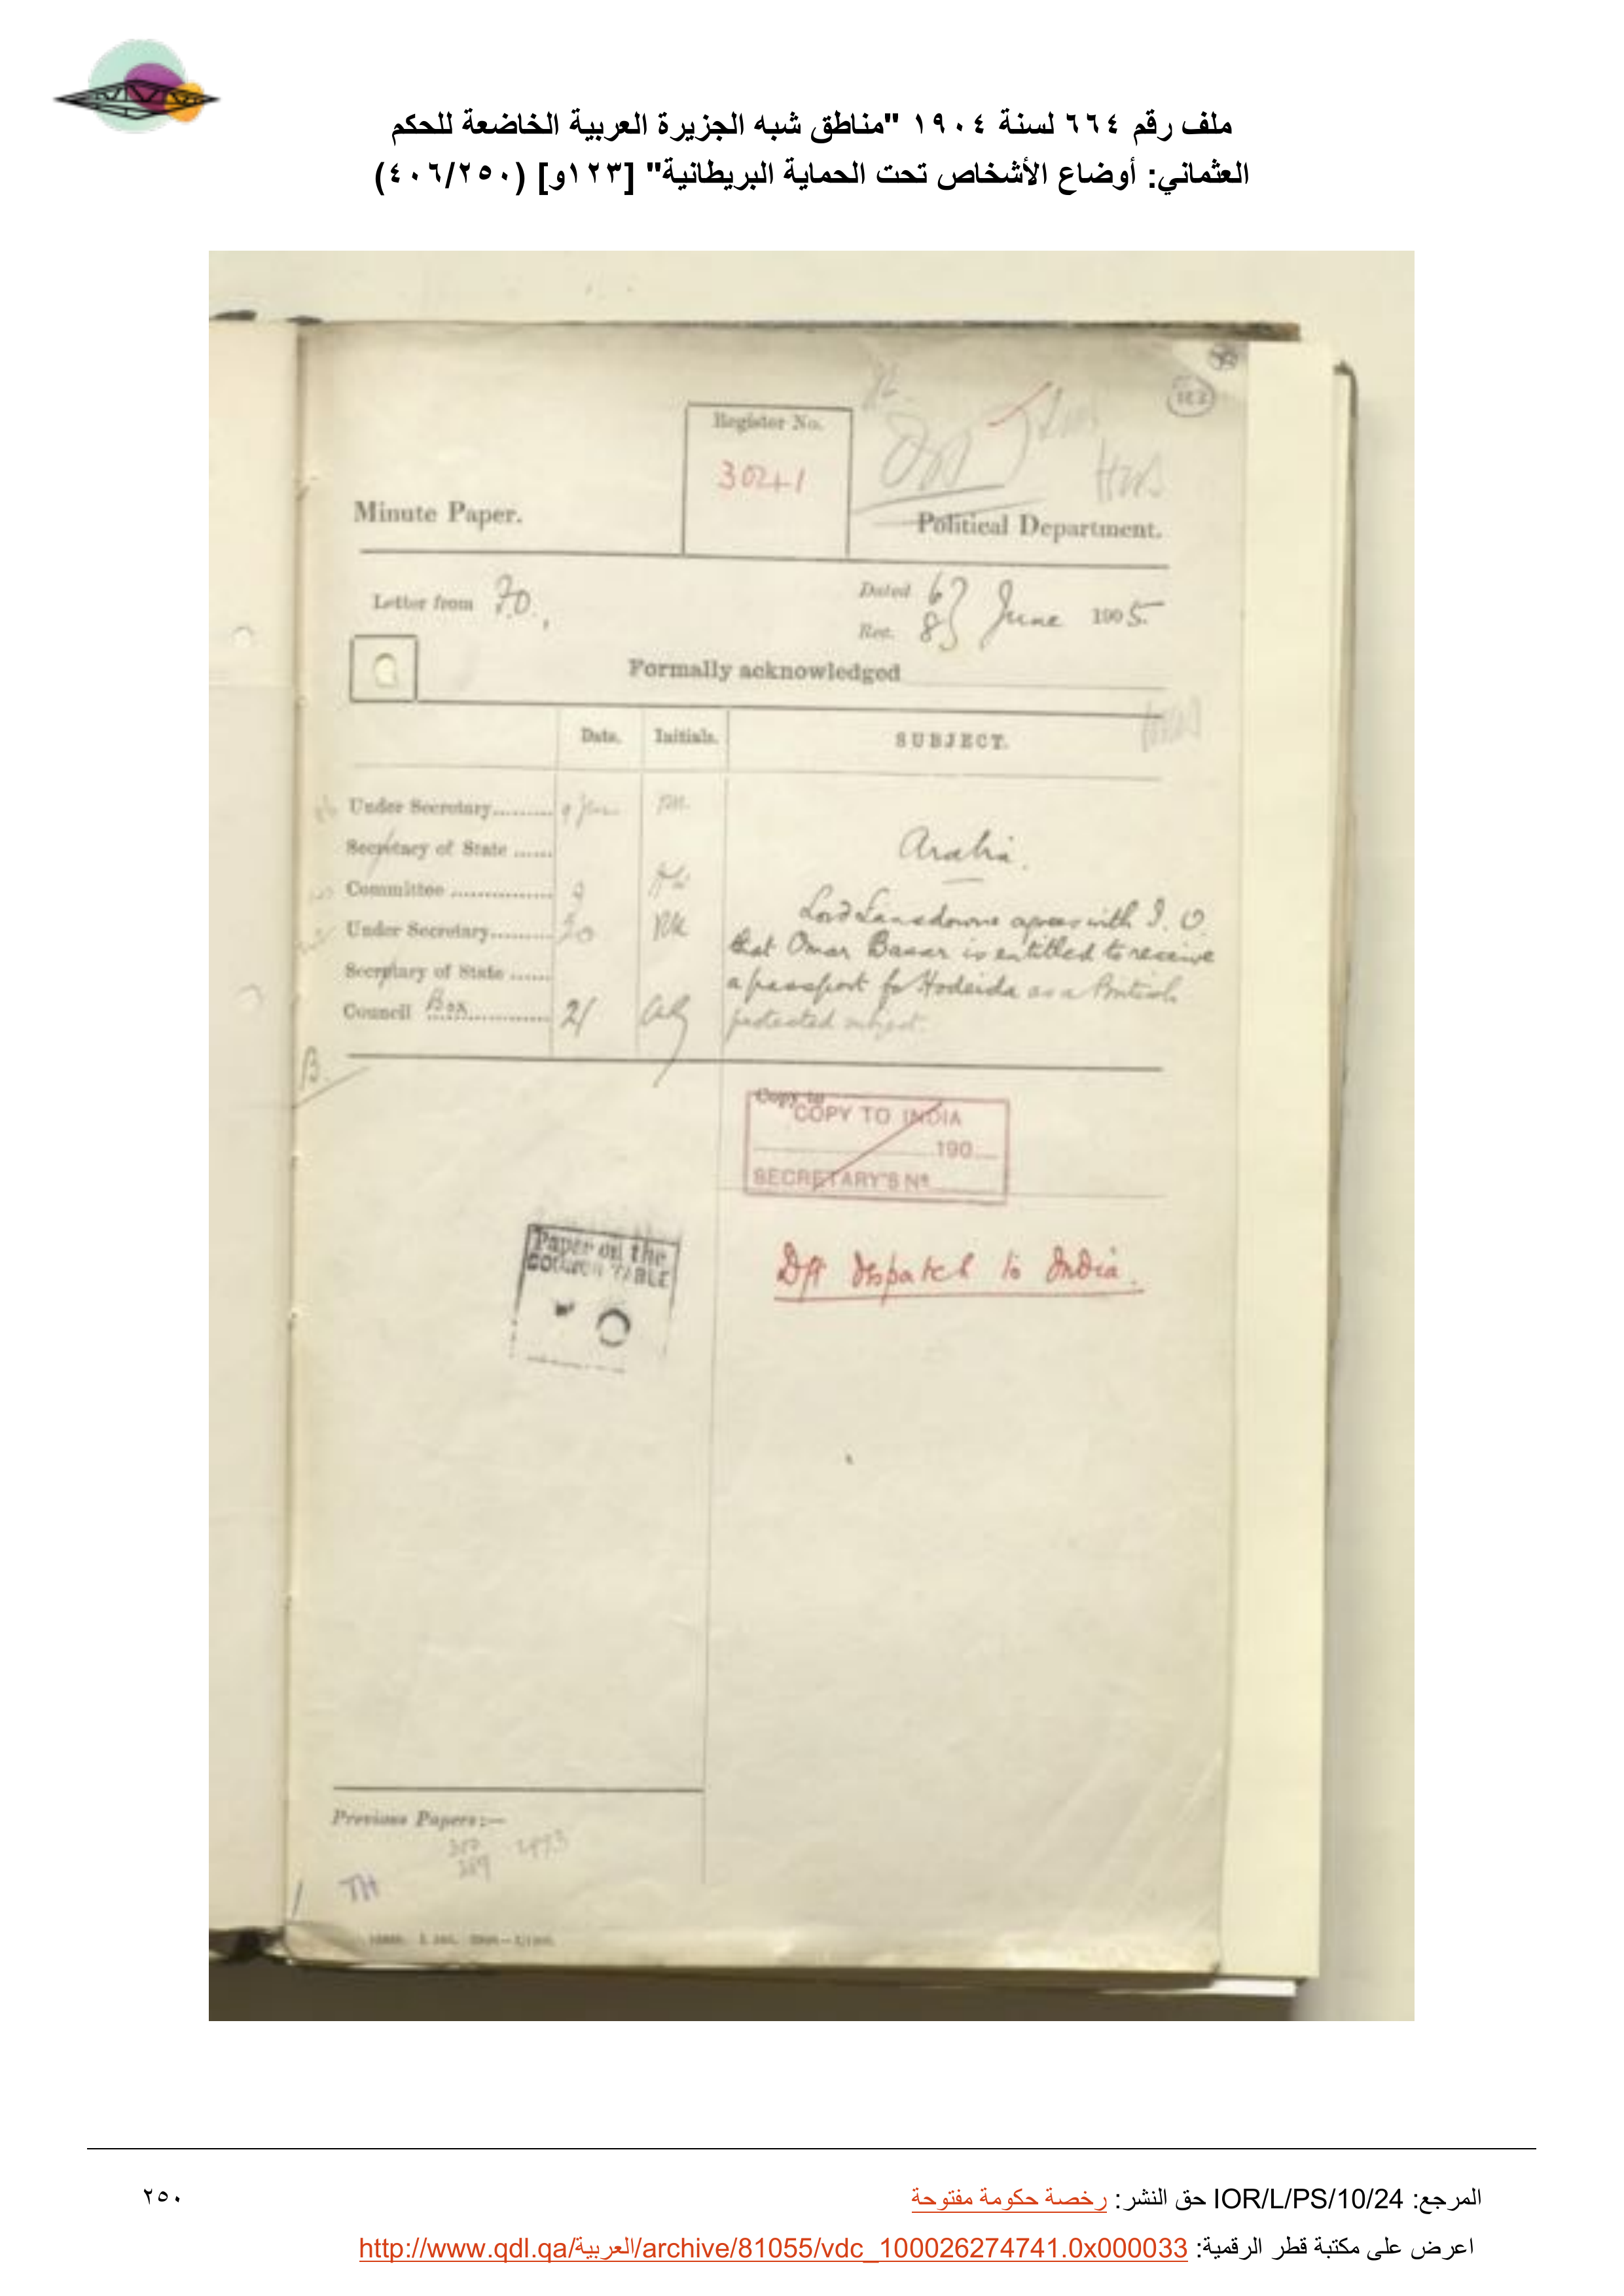 ملف رقم ٦٦٤ لسنة ١٩٠٤ "مناطق شبه الجزيرة العربية الخاضعة للحكم
العثماني: أوضاع الأشخاص تحت الحماية البريطانية" [١٢٣و] (٤٠٦/٢٥٠)
Register No.
3041
Minute Paper.
Political Department.
Letter from F.O.,
Dated 6
Rec. 8 June 1905
Formally acknowledged
Date. Initials. SUBJECT.
Under Secretary......... 9 June
Secretary of State ......
Committee ............... 9
Under Secretary......... 20
Secretary of State ......
Council Box 21
Arabia.
Lord Lansdowne agrees with I. O.
that Omar Bazar is entitled to receive
a passport for Hodeida as a British
protected subject.
B.
Copy to
COPY TO INDIA
190
SECRETARY'S No.
Paper on the
COUNCIL TABLE
Dft Dispatch to India.
Previous Papers:—
TH
المرجع: IOR/L/PS/10/24 حق النشر: رخصة حكومة مفتوحة
٢٥٠
اعرض على مكتبة قطر الرقمية: http://www.qdl.qa/العربية/archive/81055/vdc_100026274741.0x000033